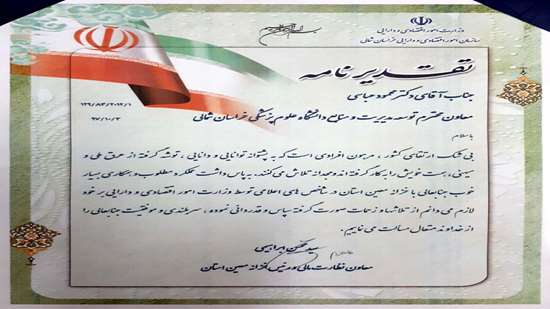 وزارت امور اقتصادی و دارایی
سازمان امور اقتصادی و دارایی خراسان شمالی
تقدیرنامه
جناب آقای دکتر محمود عباسی
معاون محترم توسعه مدیریت و منابع دانشگاه علوم پزشکی خراسان شمالی
با سلام
بی شک ارتقای کشور ، مرهون افرادی است که به پشتوانه توانایی و دانایی ، توشه گرفته از عرق ملی و
میهنی، همت خویش را به کار گرفته اند و مجدانه تلاش می کنند. به پاس داشت عملکرد مطلوب و همکاری بسیار
خوب جنابعالی با خزانه معین استان در شاخص های اعلامی توسط وزارت امور اقتصادی و دارایی بر خود
لازم می دانم از تلاشها و زحمات صورت گرفته سپاس و قدردانی نموده ، سربلندی و موفقیت جنابعالی را
از خداوند متعال مسالت می نماییم.
معاون نظارت مالی و رئیس خزانه معین استان